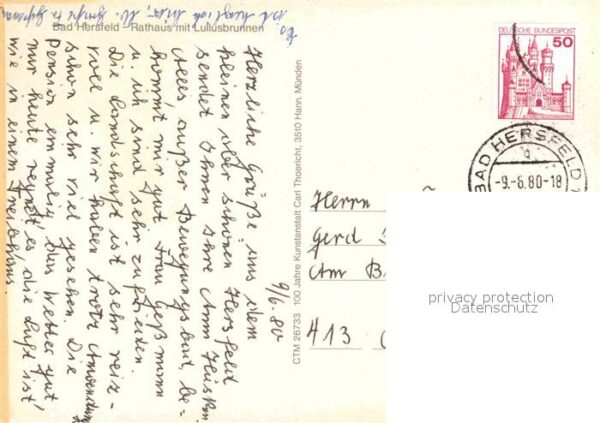 Bad Hersfeld - Rathaus mit Lullusbrunnen
9/6.80
Herzliche Grüße aus dem
kleinen aber schönen Hersfeld
sendet Ihnen Ihre Anm Hüskn.
Alles, außer Bewegungsbad, be-
kommt mir gut. Frau Geßmann
u. ich sind sehr zufrieden.
Die Landschaft ist sehr reiz-
voll u. wir haben trotz Anwendung
schon sehr viel gesehen. Die
Pension einmalig, das Wetter gut
nur heute regnet es die Luft ist
wie in einem Treibhaus.
CTM 26733 100 Jahre Kunstanstalt Carl Thoericht, 3510 Hann. Münden
DEUTSCHE BUNDESPOST
50
BAD HERSFELD 1
-9.-6.80-18
Herrn
Gerd
Am B
413
privacy protection
Datenschutz